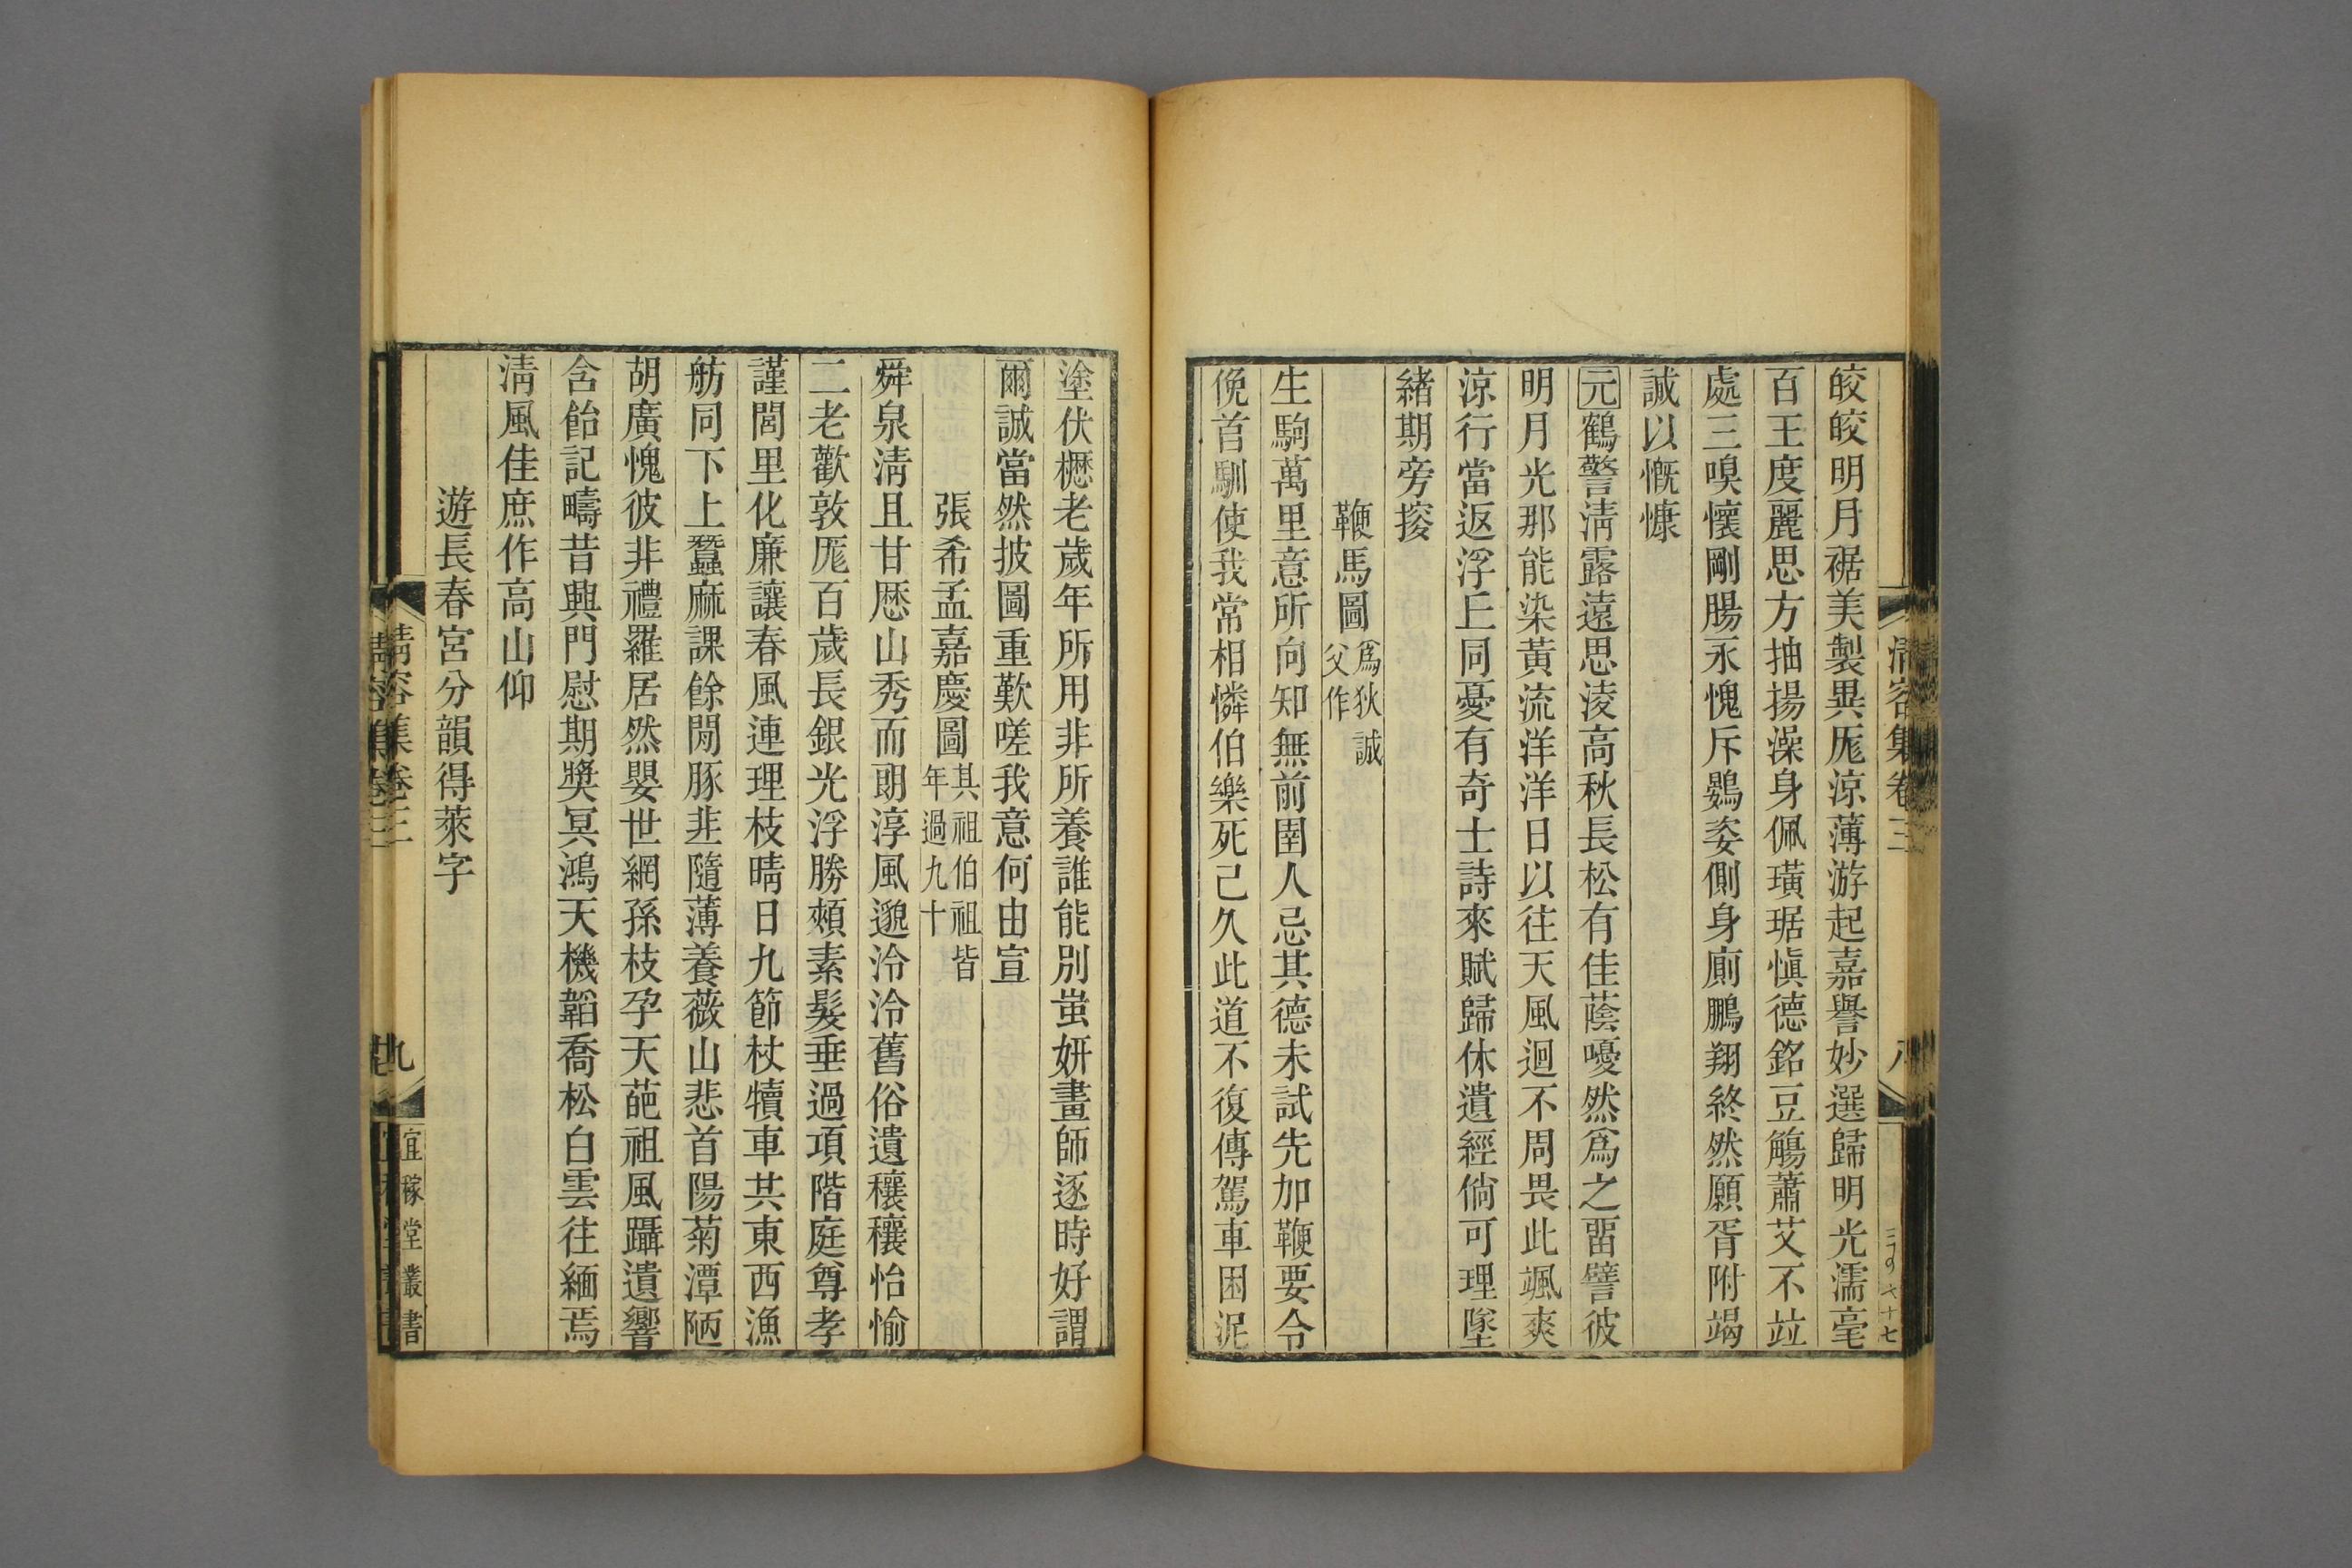 皎皎明月裾美製異厖涼薄游起嘉譽妙選歸明光濡毫
百王度麗思方抽揚澡身佩璜琚愼德銘豆觴蕭艾不竝
處三嗅懷剛腸永愧斥鷃姿側身廁鵬翔終然願胥附竭
誠以慨慷
元鶴警淸露遠思淩高秋長松有佳蔭嚘然爲之畱譬彼
明月光那能染黃流洋洋日以往天風迴不周畏此颯爽
涼行當返浮丘同憂有奇士詩來賦歸休遺經倘可理墜
緒期旁搜
鞭馬圖爲狄誠父作
生駒萬里意所向知無前圉人忌其德未試先加鞭要令
俛首馴使我常相憐伯樂死已久此道不復傳駕車困泥
塗伏櫪老歲年所用非所養誰能別蚩妍畫師逐時好謂
爾誠當然披圖重歎嗟我意何由宣
張希孟嘉慶圖其祖伯祖皆年過九十
舜泉淸且甘厯山秀而朗淳風邈泠泠舊俗遺穰穰怡愉
二老歡敦厖百歲長銀光浮勝頰素髮垂過項階庭尊孝
謹閭里化廉讓春風連理枝晴日九節杖犢車共東西漁
舫同下上蠶麻課餘閒豚韭隨薄養薇山悲首陽菊潭陋
胡廣愧彼非禮羅居然嬰世網孫枝孕天葩祖風躡遺響
含飴記疇昔興門慰期奬冥鴻天機韜喬松白雲往緬焉
淸風佳庶作高山仰
遊長春宮分韻得萊字
淸容集卷三
九
宜稼堂叢書